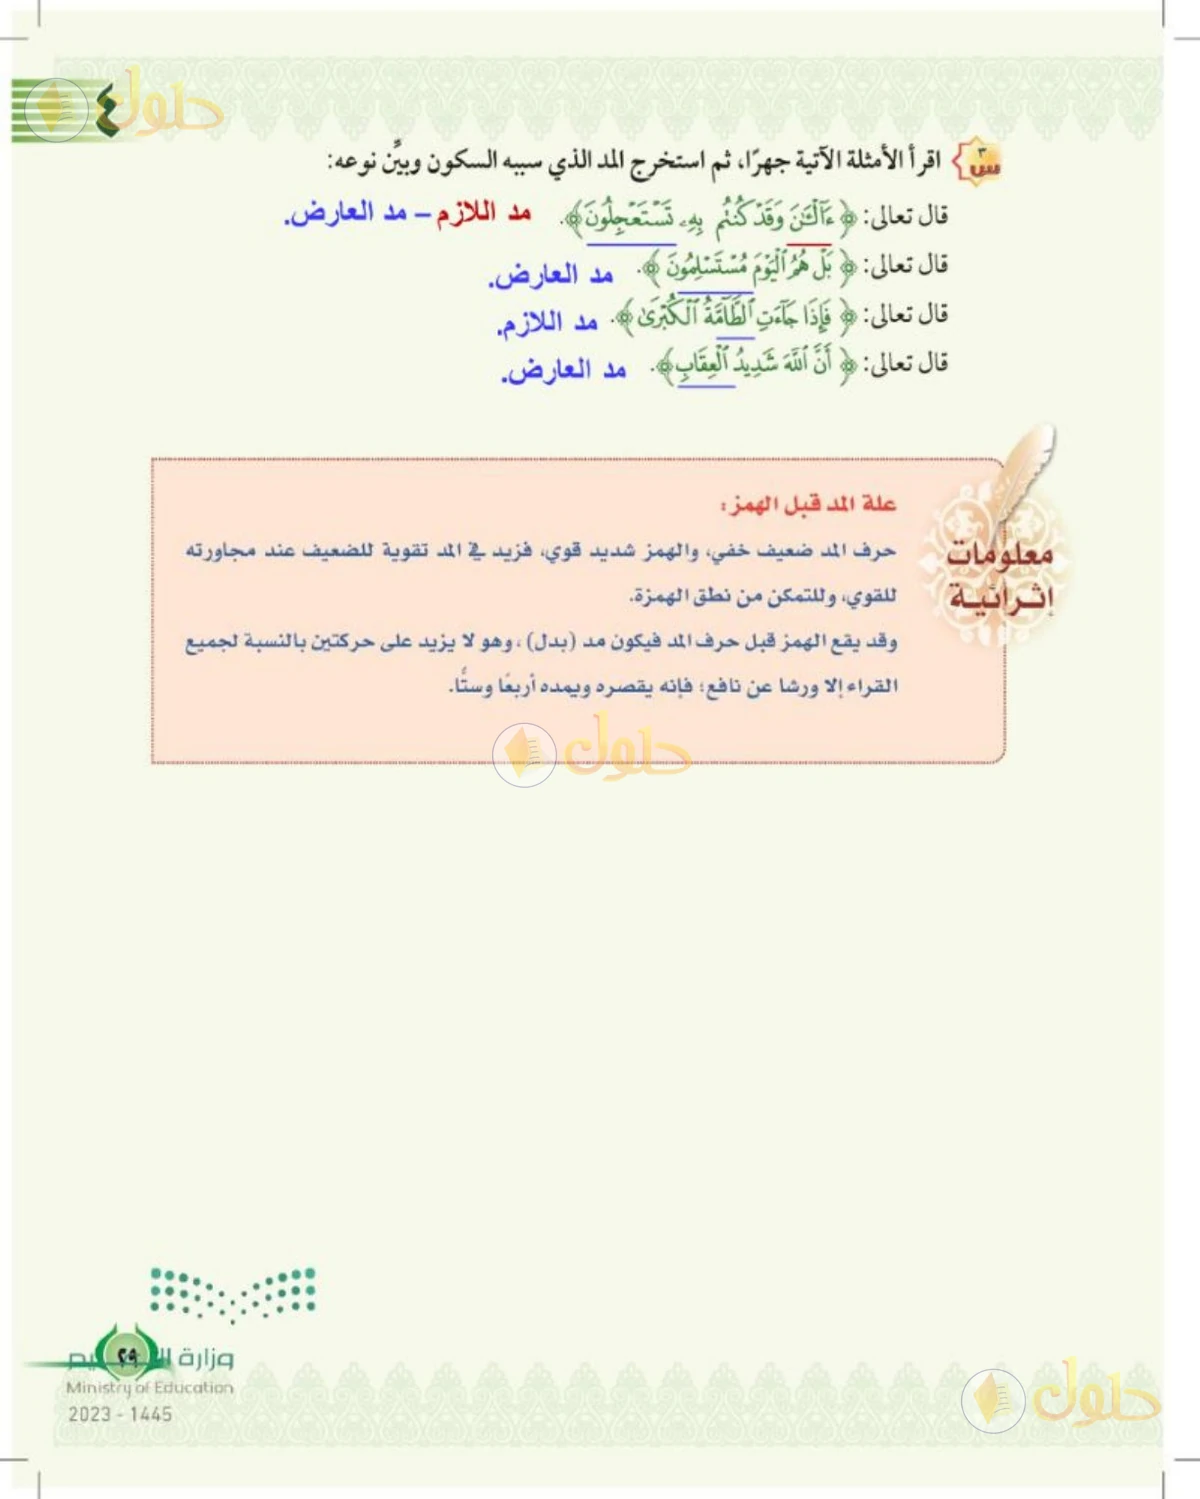 حلول
٤
س٣ اقرأ الأمثلة الآتية جهرًا، ثم استخرج المد الذي سببه السكون وبيِّن نوعه:
قال تعالى: ﴿ ءَآلْـَٰٔنَ وَقَدْ كُنتُم بِهِۦ تَسْتَعْجِلُونَ ﴾. مد اللازم – مد العارض.
قال تعالى: ﴿ بَلْ هُمُ ٱلْيَوْمَ مُسْتَسْلِمُونَ ﴾. مد العارض.
قال تعالى: ﴿ فَإِذَا جَآءَتِ ٱلطَّآمَّةُ ٱلْكُبْرَىٰ ﴾. مد اللازم.
قال تعالى: ﴿ أَنَّ ٱللَّهَ شَدِيدُ ٱلْعِقَابِ ﴾. مد العارض.
معلومات
إثرائية
علة المد قبل الهمز:
حرف المد ضعيف خفي، والهمز شديد قوي، فزيد في المد تقوية للضعيف عند مجاورته
للقوي، وللتمكن من نطق الهمزة.
وقد يقع الهمز قبل حرف المد فيكون مد (بدل)، وهو لا يزيد على حركتين بالنسبة لجميع
القراء إلا ورشا عن نافع؛ فإنه يقصره ويمده أربعًا وستًّا.
حلول
وزارة التعليم
٢٩
Ministry of Education
2023 - 1445
حلول